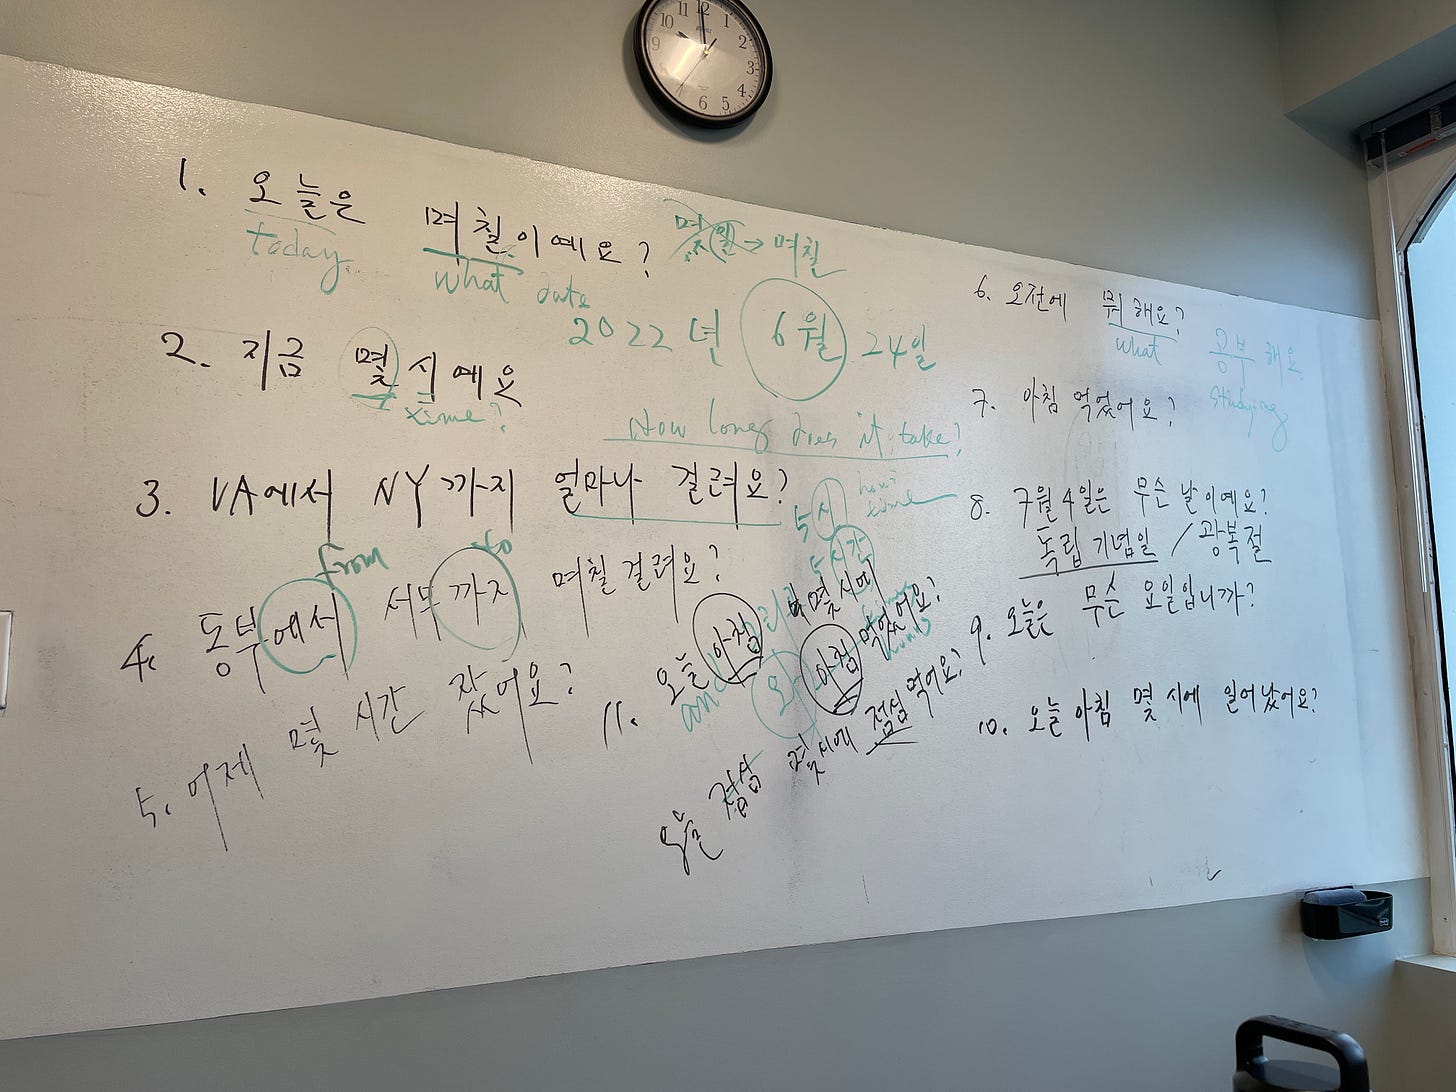 11 12 1
10 2
9 3
4
7 6 5
1. 오늘은 며칠이예요?
today what date
몇일 → 며칠
2022년 6월 24일
2. 지금 몇 시예요
time?
How long does it take?
3. VA에서 NY까지 얼마나 걸려요?
from to
5시
time
5시간
4. 동부에서 서부까지 며칠 걸려요?
5. 어제 몇 시간 잤어요?
6. 오전에 뭐 해요?
what 공부해요
studying
7. 아침 먹었어요?
8. 7월 4일은 무슨 날이예요?
독립기념일 / 광복절
9. 오늘은 무슨 요일입니까?
10. 오늘 아침 몇 시에 일어났어요?
11. 오늘 아침 몇 시에
아침 먹었어요?
and 와
오늘 점심 몇 시에 점심 먹어요?